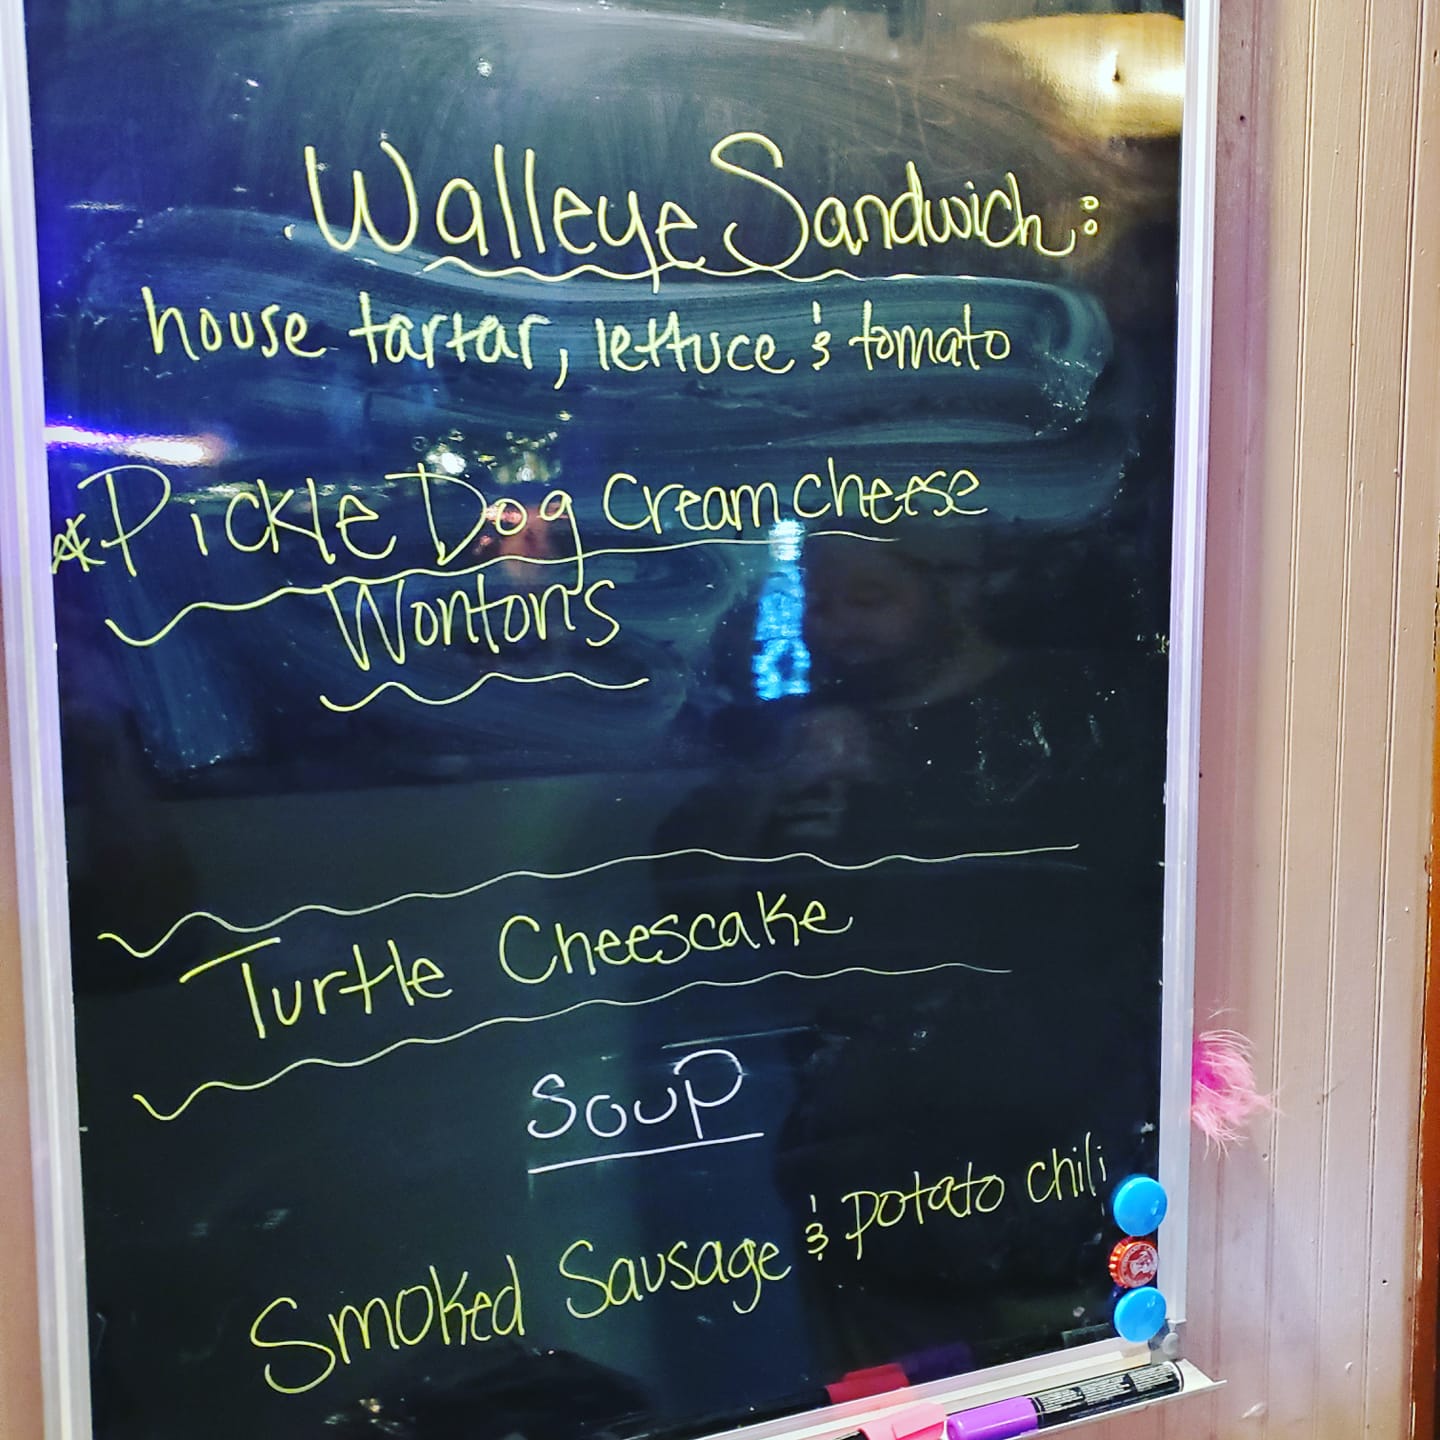 Walleye Sandwich:
house tartar, lettuce & tomato
*Pickle Dog Cream cheese
Wontons
Turtle Cheescake
Soup
Smoked Sausage & potato chili